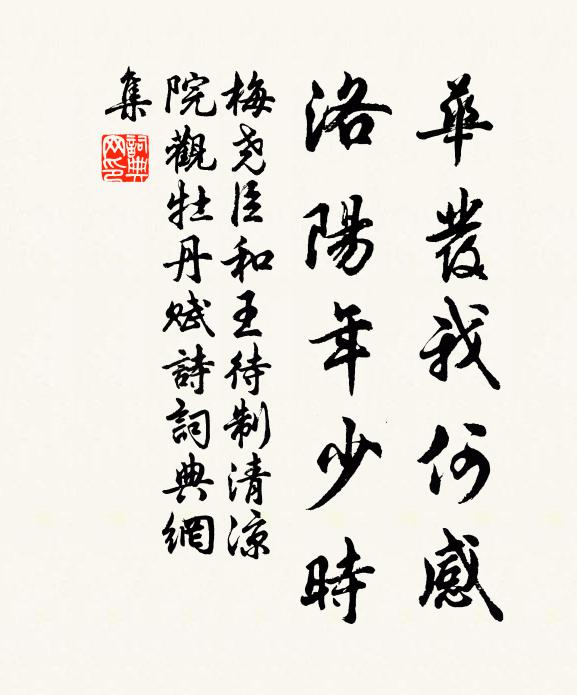 華發我何感
洛陽年少時
梅堯臣和王待制清涼
院觀牡丹賦詩詞典網
集
詞典網印